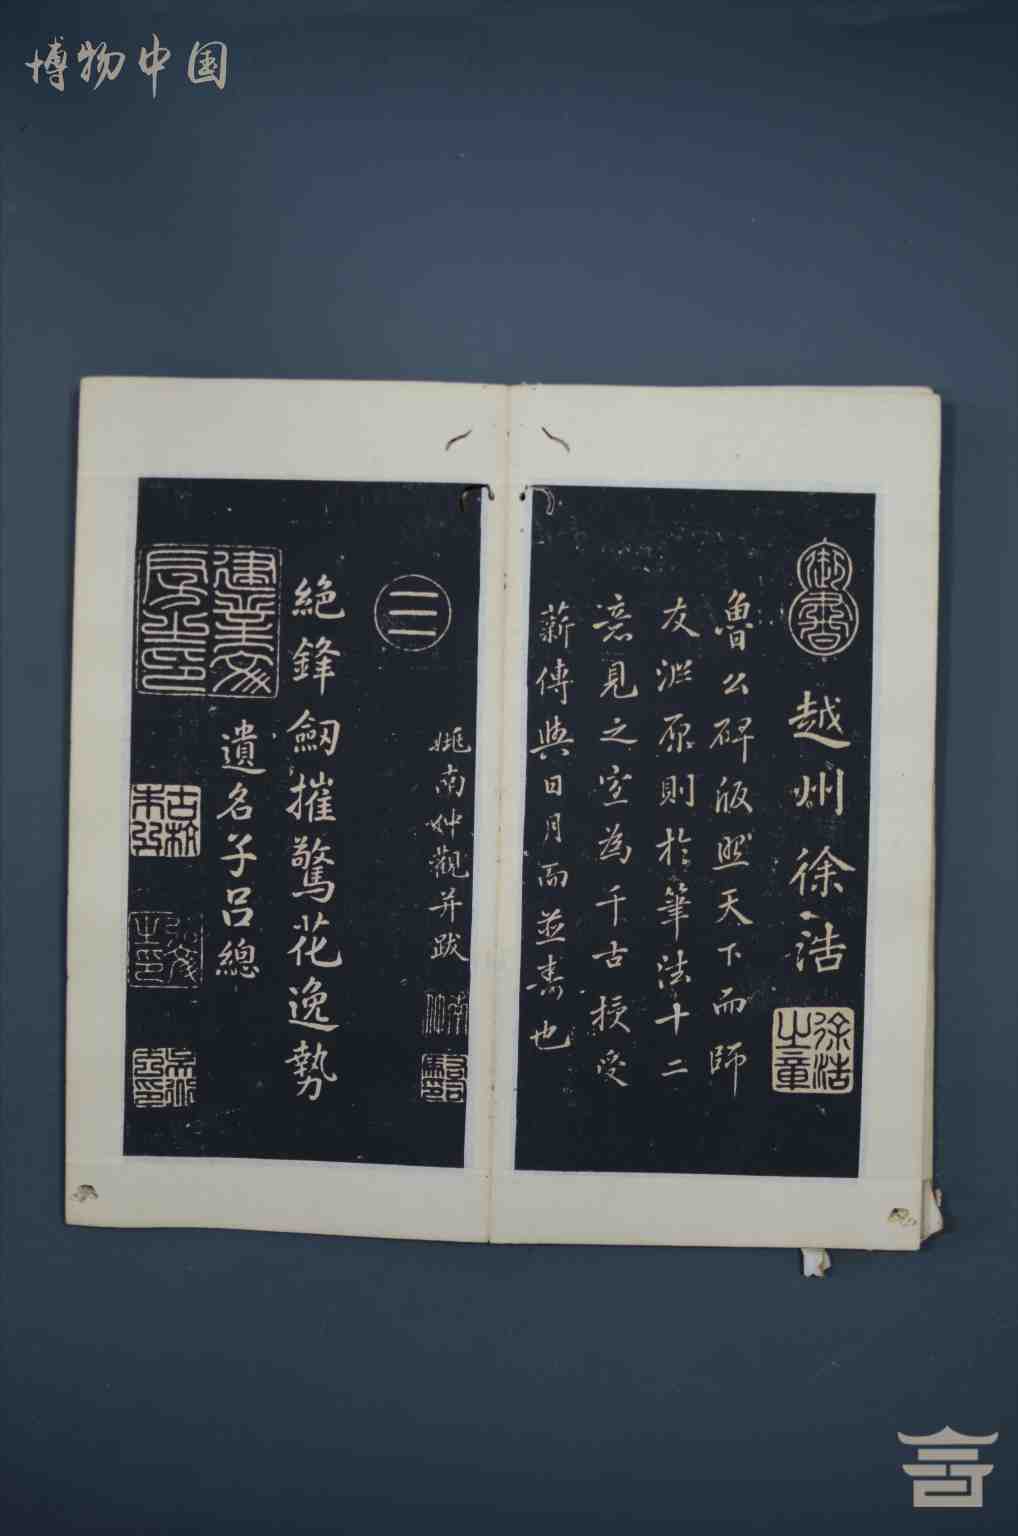 博物中国
御書
越州徐浩
徐浩之章
魯公碑版照天下而師
友淵源則於筆法十二
意見之宜為千古授受
薪傳與日月而並壽也
姚南仲觀并跋
三
絕鋒劒摧驚花逸勢
遺名子呂總
建業文房之印